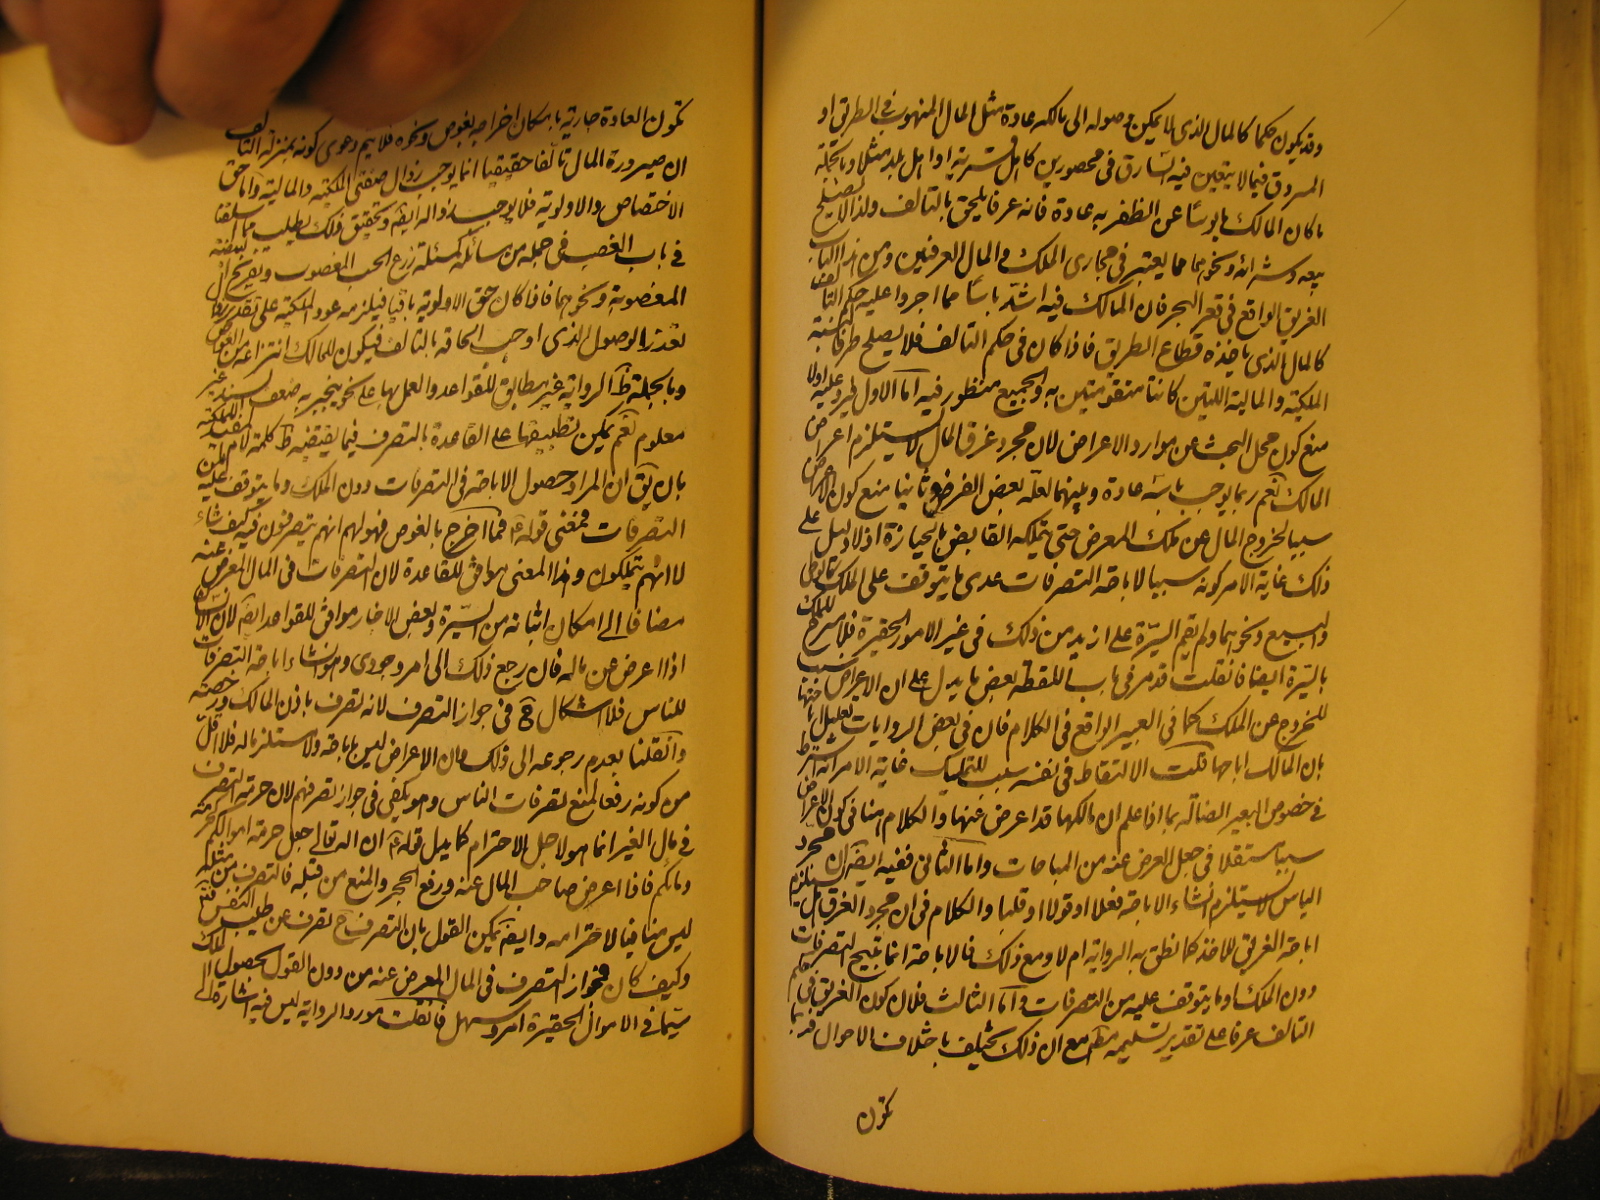 وقد يكون حكما كالمال الذى لا يمكن وصوله الى مالكه عادة مثل المال المنهوب فى الطريق او
المسروق فيما لا يتعين فيه السارق فى محصورين كاهل قرية او اهل بلد مثلا وبالجملة
ما كان المالك مايوسا عن الظفر به عادة فانه عرفا يلحق بالتالف ولذا لا يصلح
بيعه وشرائه ونحوهما مما يعتبر فى مجارى الملك والمال العرفيين ومن هذا الباب
الغريق الواقع فى قعر البحر فان المالك فيه اشد ياسا مما اجروا عليه حكم التالف
كالمال الذى ياخذه قطاع الطريق فاذا كان فى حكم التالف فلا يصلح طرفا لنسبة
الملكية والمالية اللتين كانتا متقومتين به والجميع منظور فيه اما الاول فيرد عليه اولا
منع كون محل البحث من موارد الاعراض لان مجرد غرق المال لا يستلزم اعراض
المالك نعم ربما يوجب ياسه عادة وبينهما لعله بعض الفرض وثانيا منع كون الاعراض
سببا لخروج المال عن ملك المعرض حتى يتملكه القابض بالحيازة اذ لا دليل على
ذلك غاية الامر كونه سببا لاباحة التصرفات عدى ما يتوقف على الملك كالوطى
والبيع ونحوهما ولم يقم السيرة على ازيد من ذلك فى غير الامور الحقيرة فلا مسرح للملك
بالسيرة ايضا فان قلت قد مر فى باب اللقطة بعض ما يدل على ان الاعراض سبب
للخروج عن الملك كما فى البعير الواقع فى الكلام فان فى بعض الروايات تعليل اباحتها
بان المالك اباحها قلت الالتقاط فى نفسه سبب للتمليك غاية الامر انه اشترط
فى خصوص البعير الضالة بما اذا علم ان مالكها قد اعرض عنها والكلام هنا فى كون الاعراض
سببا مستقلا فى جعل المعرض عنه من المباحات واما الثانى ففيه ايضا ان مجرد
الياس لا يستلزم انشاء الاباحة فعلا او قولا او قلبا والكلام فى ان مجرد الغرق هل يستلزم
اباحة الغريق للاخذ كما نطق به الرواية ام لا ومع ذلك فالاباحة انما تبيح التصرفات
دون الملك او ما يتوقف عليه من التصرفات واما الثالث فلان كون الغريق فى حكم
التالف عرفا على تقدير تسليمه مط مع ان ذلك يختلف باختلاف الاحوال فربما
تكون
تكون العادة جارية بامكان اخراجه بغوص ونحوه فلا يتم دعوى كونه بمنزلة التالف
ان صيرورة المال تالفا حقيقيا انما يوجب زوال صفتى الملكية والمالية واما حق
الاختصاص والاولوية فلا يوجب زواله ايضا وتحقيق ذلك يطلب مما اسلفنا
فى باب الغصب فى جملة من مسائله كمسئلة زرع الحب المغصوب وتفريخ البيضة
المغصوبة ونحوهما فاذا كان حق الاولوية باقيا فيلزمه عود الملكية على تقدير زوال
تعذر الوصول الذى اوجب الحاقه بالتالف فيكون للمالك انتزاعه من الغواص
وبالجملة ظ الرواية غير مطابق للقواعد والعمل بها على نحو ينجبر به ضعف السند غير
معلوم نعم يمكن تطبيقها على القاعدة بالتصرف فيما يقتضيه ظ كلمة لام المفيد للملكية
بان يق ان المراد حصول الاباحة فى التصرفات دون الملك وما يتوقف عليه من
التصرفات فمعنى قوله ع فما اخرج بالغوص فهو لهم انهم يتصرفون فيه كيف شاء
لا انهم يتملكون وهذا المعنى موافق للقاعدة لان التصرفات فى المال المعرض عنه
مضافا الى امكان اثباته من السيرة وبعض الاخبار موافق للقواعد ايضا لان الانسان
اذا اعرض عن ماله فان رجع ذلك الى امر وجودى وهو انشاء اباحة التصرفات
للناس فلا اشكال ح فى جواز التصرف لانه تصرف باذن المالك ورخصته
وان قلنا بعدم رجوعه الى ذلك وان الاعراض ليس اباحة ولا مستلزما له فلا اقل
من كونه رفعا لمنع تصرفات الناس وهو يكفى فى جواز تصرفهم لان حرمة التصرف
فى مال الغير انما هو لاجل الاحترام كما يدل قوله ع ان الله تعالى جعل حرمة اموالكم كحرمة
دمائكم فاذا اعرض صاحب المال عنه ورفع الحجر والمنع من قبله فالتصرف من مثله
ليس منافيا لاحترامه وايضا يمكن القول بان التصرف ح تصرف عن طيب النفس فتم
وكيف كان فجواز التصرف فى المال المعرض عنه من دون القول بحصول الملك
سيما فى الاموال الحقيرة امر سهل فان قلت مورد الرواية ليس فيه اشارة الى